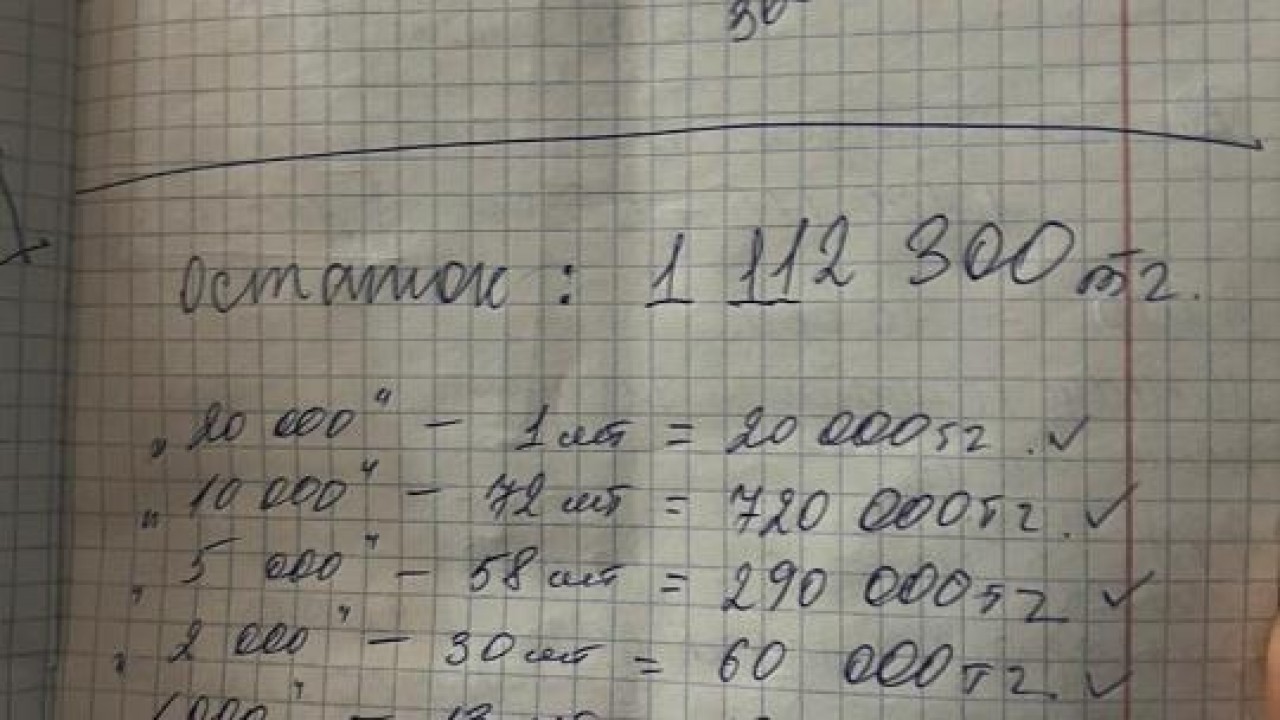 30
остаток : 1 112 300 тг.
„20 000“ – 1 шт = 20 000 тг. ✓
„10 000“ – 72 шт = 720 000 тг. ✓
„5 000“ – 58 шт = 290 000 тг ✓
„2 000“ – 30 шт = 60 000 тг. ✓
1 000“ – 13